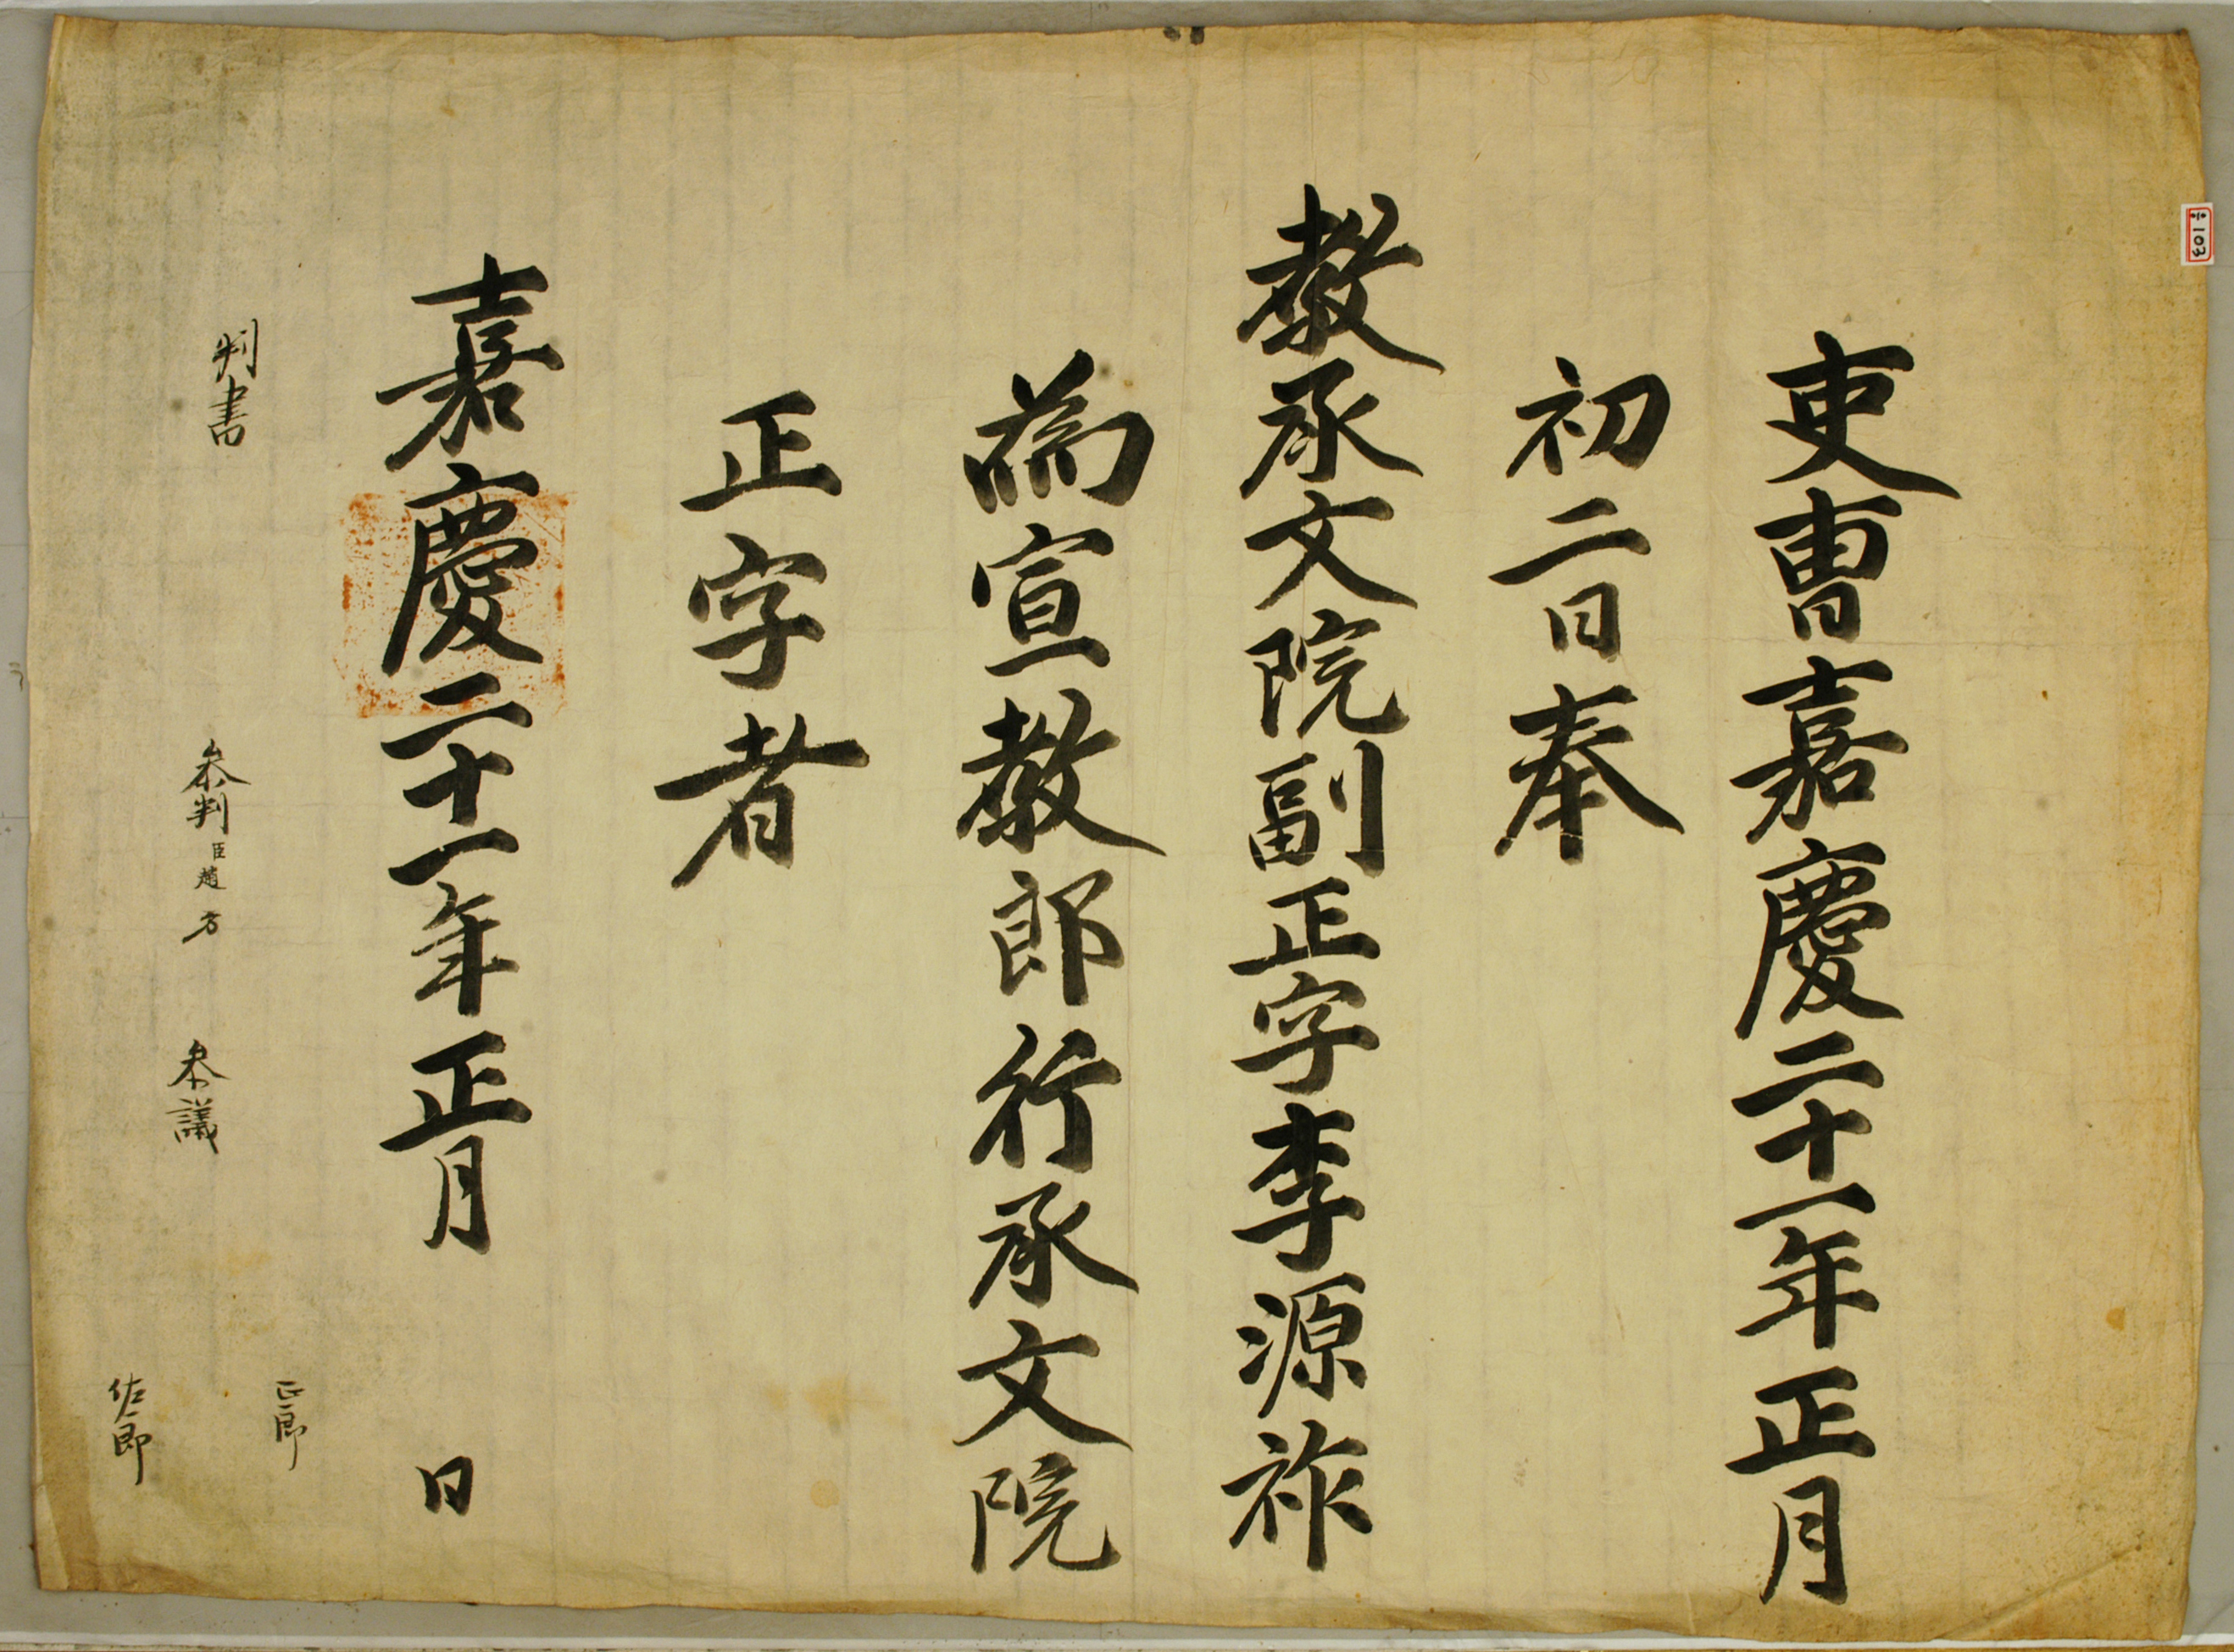 吏曹嘉慶二十一年正月
初二日奉
敎承文院副正字李源祚
爲宣敎郎行承文院
正字者
嘉慶二十一年正月 日
判書 參判臣趙 參議
正郎
佐郎
103